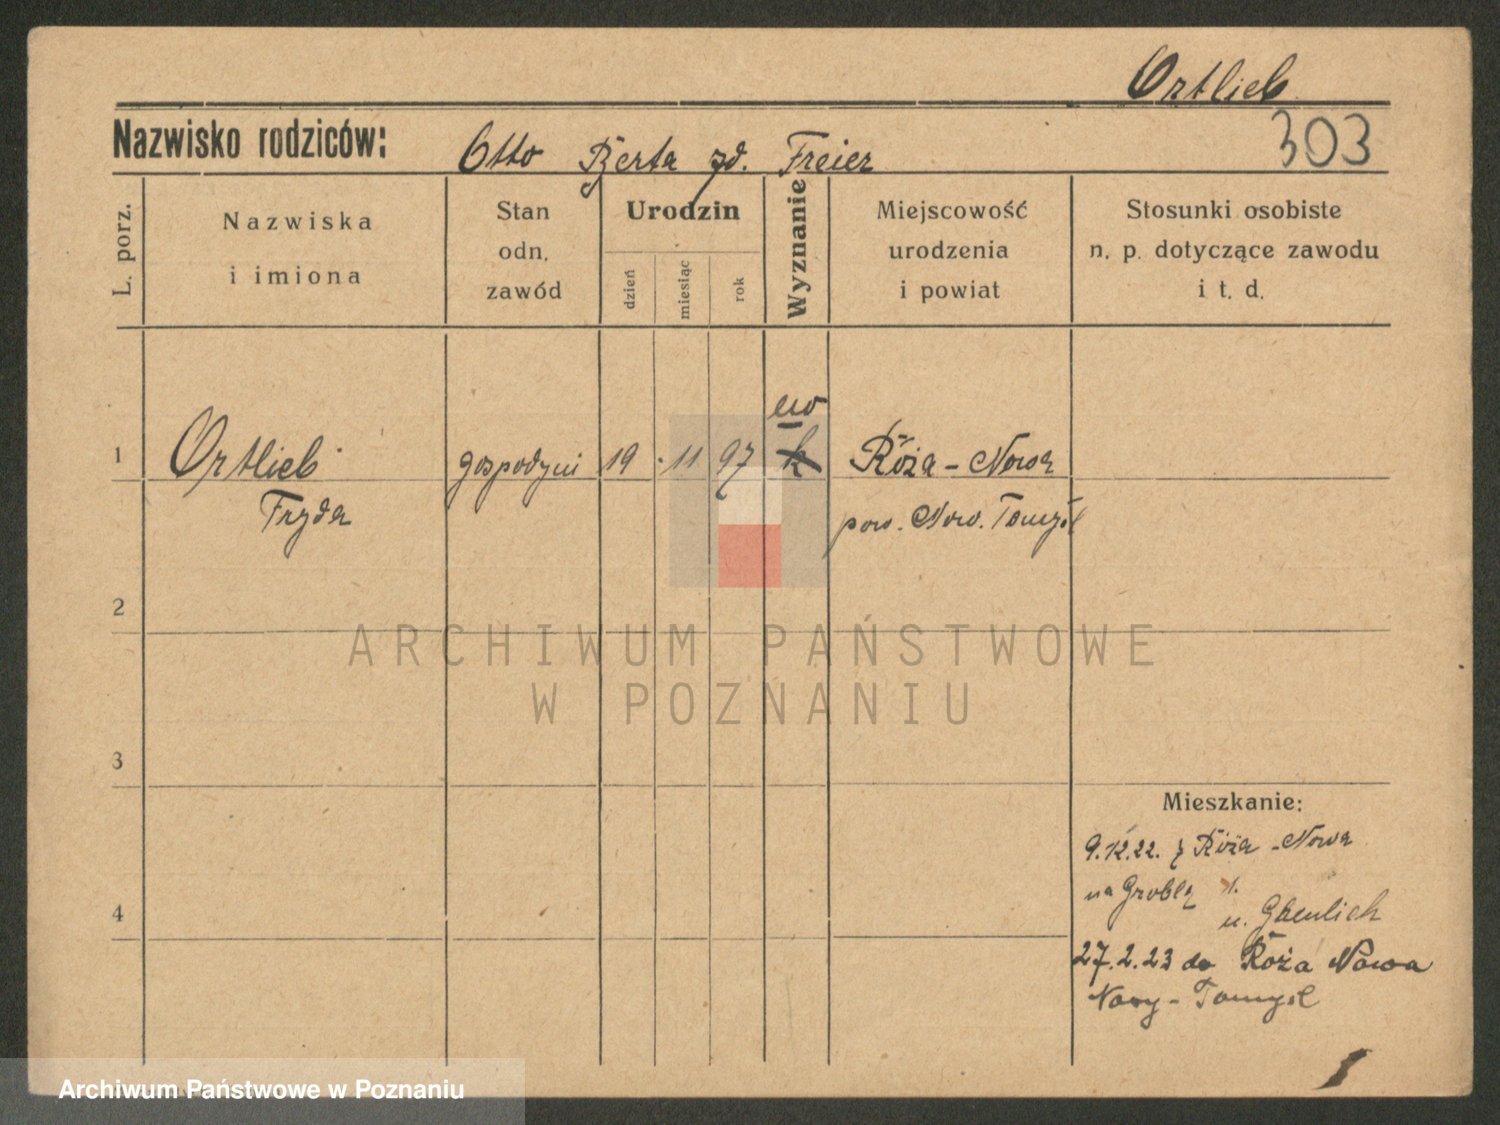 Ortlieb
Nazwisko rodziców: Otto Berta zd. Freier 303
L. porz.
Nazwiska
i imiona
Stan
odn.
zawód
Urodzin
dzień
miesiąc
rok
Wyznanie
Miejscowość
urodzenia
i powiat
Stosunki osobiste
n. p. dotyczące zawodu
i t. d.
ew
1 Ortlieb gospodyni 19 11 97 k Róża - Nowa
Fryda pow. Now. Tomyśl
2
3
4
Mieszkanie:
9.12.22. z Róża - Nowa
na Groblą 1.
u.
27.2.23 do Róża Nowa
Nowy - Tomyśl
ARCHIWUM PAŃSTWOWE
W POZNANIU
Archiwum Państwowe w Poznaniu